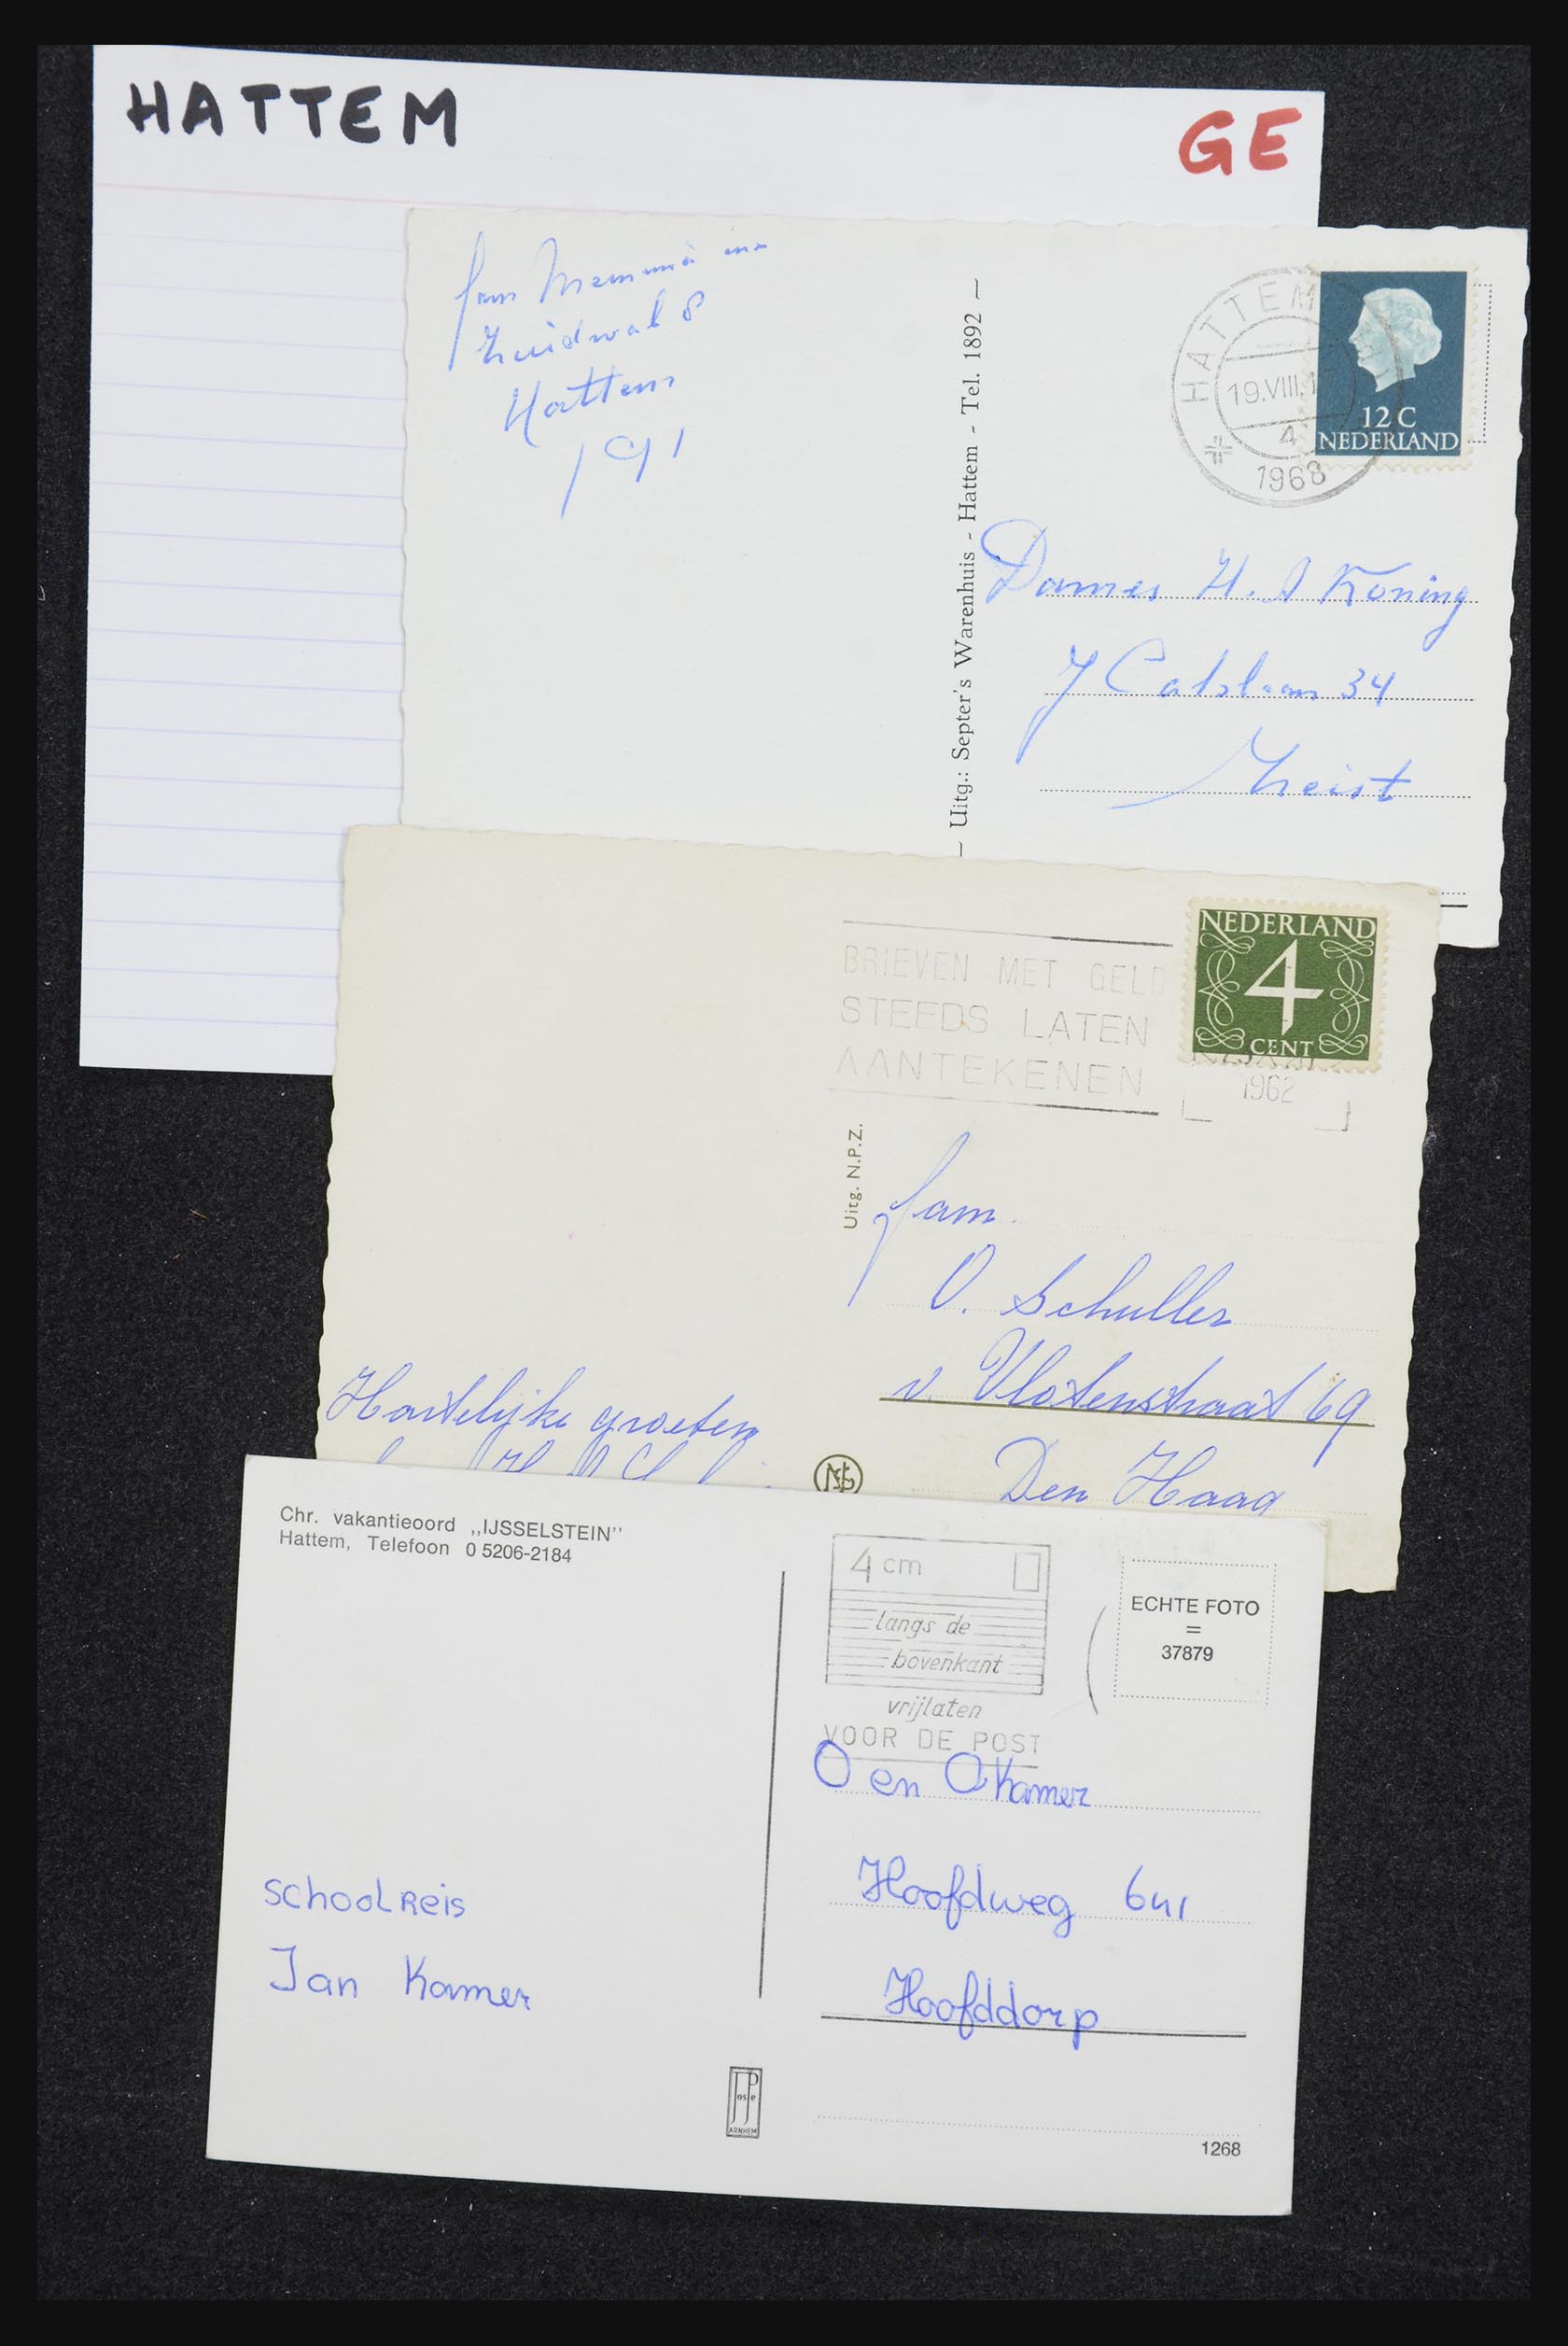 HATTEM
GE
fam
Zuidwal 8
Hattem
191
– Uitg.: Septer's Warenhuis - Hattem - Tel. 1892 –
HATTEM
19.VIII.1
4
1968
12 C
NEDERLAND
Dames H. A Koning
J Catslaan 34
Zeist
BRIEVEN MET GELD
STEEDS LATEN
AANTEKENEN
NEDERLAND
4
CENT
1962
Uitg. N.P.Z.
fam.
O. Schuller
v. Vlotenstraat 69
Den Haag
Hartelijke groeten
Chr. vakantieoord „IJSSELSTEIN”
Hattem, Telefoon 0 5206-2184
4 cm
langs de
bovenkant
vrijlaten
VOOR DE POST
ECHTE FOTO
=
37879
O en O Kamer
Hoofdweg 641
Hoofddorp
schoolreis
Jan Kamer
JosPe
ARNHEM
1268